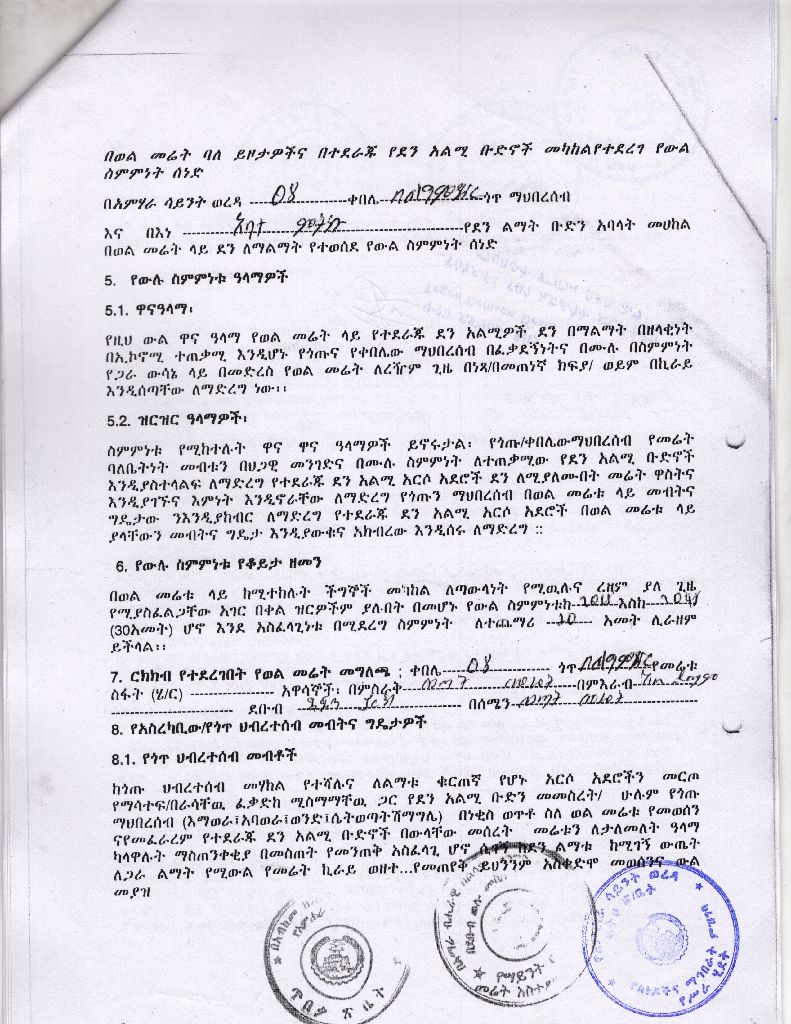 በወል መሬት ባለ ይዞታዎችና በተደራጁ የደን አልሚ ቡድኖች መካከልየተደረገ የውል
ስምምነት ሰነድ
በአምሃራ ሳይንት ወረዳ 08 ቀበሌ ጎጥ ማህበረሰብ
እና በእነ የደን ልማት ቡድን አባላት መሀከል
በወል መሬት ላይ ደን ለማልማት የተወሰደ የውል ስምምነት ሰነድ
5. የውሉ ስምምነቱ ዓላማዎች
5.1. ዋናዓላማ፡
የዚህ ውል ዋና ዓላማ የወል መሬት ላይ የተደራጁ ደን አልሚዎች ደን በማልማት በዘላቂነት
በኢኮኖሚ ተጠቃሚ እንዲሆኑ የጎጡና የቀበሌው ማህበረሰብ በፈቃደኝነትና በሙሉ በስምምነት
የጋራ ውሳኔ ላይ በመድረስ የወል መሬት ለረዥም ጊዜ በነጻ/በመጠነኛ ክፍያ/ ወይም በኪራይ
እንዲሰጣቸው ለማድረግ ነው፡፡
5.2. ዝርዝር ዓላማዎች፡
ስምምነቱ የሚከተሉት ዋና ዋና ዓላማዎች ይኖሩታል፡ የጎጡ/ቀበሌውማህበረሰብ የመሬት
ባለቤትነት መብቱን በህጋዊ መንገድና በሙሉ ስምምነት ለተጠቃሚው የደን አልሚ ቡድኖች
እንዲያስተላልፍ ለማድረግ የተደራጁ ደን አልሚ አርሶ አደሮች ደን ለሚያለሙበት መሬት ዋስትና
እንዲያገኙና እምነት እንዲኖራቸው ለማድረግ የጎጡን ማህበረሰብ በወል መሬቱ ላይ መብትና
ግዴታው ንእንዲያከብር ለማድረግ የተደራጁ ደን አልሚ አርሶ አደሮች በወል መሬቱ ላይ
ያላቸውን መብትና ግዴታ እንዲያውቁና አክብረው እንዲሰሩ ለማድረግ ::
6. የውሉ ስምምነቱ የቆይታ ዘመን
በወል መሬቱ ላይ ከሚተከሉት ችግኞች መካከል ለጣውላነት የሚዉሉና ረዘም ያለ ጊዜ
የሚያስፈልጋቸው አገር በቀል ዝርዎችም ያሉበት በመሆኑ የውል ስምምነቱከ እስከ
(30አመት) ሆኖ እንደ አስፈላጊነቱ በሚደረግ ስምምነት ለተጨማሪ አመት ሊራዘም
ይችላል፡፡
7. ርክክብ የተደረገበት የወል መሬት መግለጫ ; ቀበሌ 08 ጎጥ የመሬቱ
ስፋት (ሄ/ር) አዋሳኞች፡ በምስራቅ በምእራብ
ደቡብ በሰሜን
8. የአስረካቢው/የጎጥ ህብረተሰብ መብትና ግዴታዎች
8.1. የጎጥ ህብረተሰብ መብቶች
ከጎጡ ህብረተሰብ መሃከል የተሻሉና ለልማቱ ቁርጠኛ የሆኑ አርሶ አደሮችን መርጦ
የማሳተፍ/በራሳቸዉ ፈቃድከ ሚስማማቸዉ ጋር የደን አልሚ ቡድን መመስረት/ ሁሉም የጎጡ
ማህበረሰብ (እማወራ፤አባወራ፤ወንድ፤ሴትወጣትሽማግሌ) በነቂስ ወጥቶ ስለ ወል መሬቱ የመወሰን
ናየመፈራረም የተደራጁ ደን አልሚ ቡድኖች በውላቸው መሰረት መሬቱን ለታለመለት ዓላማ
ካላዋሉት ማስጠንቀቂያ በመስጠት የመንጠቅ አስፈላጊ ሆኖ ሲገኝ ከደን ልማቱ ከሚገኝ ውጤት
ለጋራ ልማት የሚውል የመሬት ኪራይ ወዘተ...የመጠየቅ ይህንንም አስቀድሞ መወሰንና ውል
መያዝ
ጥበቃ ጽ ቤት